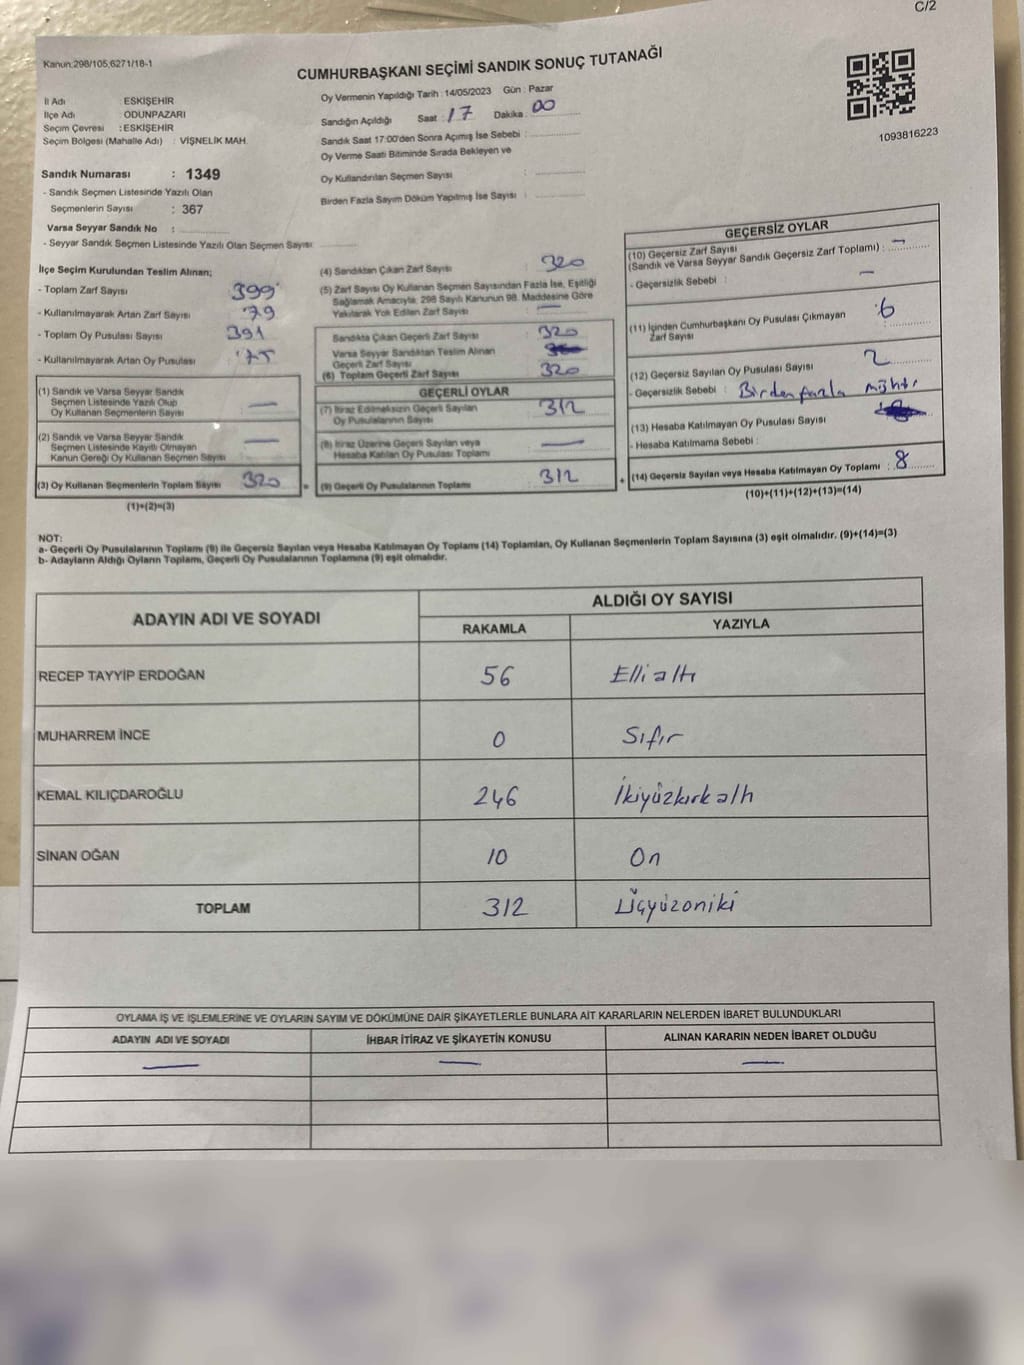 C/2
Kanun:298/105,6271/18-1
CUMHURBAŞKANI SEÇİMİ SANDIK SONUÇ TUTANAĞI
İl Adı : ESKİŞEHİR
İlçe Adı : ODUNPAZARI
Seçim Çevresi : ESKİŞEHİR
Seçim Bölgesi (Mahalle Adı) : VİŞNELİK MAH.
Sandık Numarası : 1349
- Sandık Seçmen Listesinde Yazılı Olan
Seçmenlerin Sayısı : 367
Varsa Seyyar Sandık No :
- Seyyar Sandık Seçmen Listesinde Yazılı Olan Seçmen Sayısı:
Oy Vermenin Yapıldığı Tarih : 14/05/2023 Gün : Pazar
Sandığın Açıldığı Saat : 17 Dakika : 00
Sandık Saat 17:00'den Sonra Açımış İse Sebebi :
Oy Verme Saati Bitiminde Sırada Bekleyen ve
Oy Kullandırılan Seçmen Sayısı :
Birden Fazla Sayım Döküm Yapılmış İse Sayısı :
1093816223
İlçe Seçim Kurulundan Teslim Alınan;
- Toplam Zarf Sayısı 399
- Kullanılmayarak Artan Zarf Sayısı 79
- Toplam Oy Pusulası Sayısı 391
- Kullanılmayarak Artan Oy Pusulası
(1) Sandık ve Varsa Seyyar Sandık
Seçmen Listesinde Yazılı Olup
Oy Kullanan Seçmenlerin Sayısı : —
(2) Sandık ve Varsa Seyyar Sandık
Seçmen Listesinde Kayıtlı Olmayan
Kanun Gereği Oy Kullanan Seçmen Sayısı : —
(3) Oy Kullanan Seçmenlerin Toplam Sayısı 320
(1)+(2)=(3)
(4) Sandıktan Çıkan Zarf Sayısı 320
(5) Zarf Sayısı Oy Kullanan Seçmen Sayısından Fazla İse, Eşitliği
Sağlamak Amacıyla; 298 Sayılı Kanunun 98. Maddesine Göre
Yakılarak Yok Edilen Zarf Sayısı : —
Sandıkta Çıkan Geçerli Zarf Sayısı : 320
Varsa Seyyar Sandıktan Teslim Alınan
Geçerli Zarf Sayısı
(6) Toplam Geçerli Zarf Sayısı : 320
GEÇERLİ OYLAR
(7) İtiraz Edilmeksizin Geçerli Sayılan
Oy Pusulalarının Sayısı : 312
(8) İtiraz Üzerine Geçerli Sayılan veya
Hesaba Katılan Oy Pusulası Toplamı : —
= (9) Geçerli Oy Pusulalarının Toplamı : 312
GEÇERSİZ OYLAR
(10) Geçersiz Zarf Sayısı
(Sandık ve Varsa Seyyar Sandık Geçersiz Zarf Toplamı) : —
- Geçersizlik Sebebi : —
(11) İçinden Cumhurbaşkanı Oy Pusulası Çıkmayan
Zarf Sayısı : 6
(12) Geçersiz Sayılan Oy Pusulası Sayısı : 2
- Geçersizlik Sebebi : Birden fazla mühür
(13) Hesaba Katılmayan Oy Pusulası Sayısı
- Hesaba Katılmama Sebebi :
+ (14) Geçersiz Sayılan veya Hesaba Katılmayan Oy Toplamı : 8
(10)+(11)+(12)+(13)=(14)
NOT:
a- Geçerli Oy Pusulalarının Toplamı (9) ile Geçersiz Sayılan veya Hesaba Katılmayan Oy Toplamı (14) Toplamları, Oy Kullanan Seçmenlerin Toplam Sayısına (3) eşit olmalıdır. (9)+(14)=(3)
b- Adayların Aldığı Oyların Toplamı, Geçerli Oy Pusulalarının Toplamına (9) eşit olmalıdır.
ADAYIN ADI VE SOYADI ALDIĞI OY SAYISI
RAKAMLA YAZIYLA
RECEP TAYYİP ERDOĞAN 56 Elli altı
MUHARREM İNCE 0 Sıfır
KEMAL KILIÇDAROĞLU 246 İkiyüzkırk altı
SİNAN OĞAN 10 On
TOPLAM 312 Üçyüzoniki
OYLAMA İŞ VE İŞLEMLERİNE VE OYLARIN SAYIM VE DÖKÜMÜNE DAİR ŞİKAYETLERLE BUNLARA AİT KARARLARIN NELERDEN İBARET BULUNDUKLARI
ADAYIN ADI VE SOYADI İHBAR İTİRAZ VE ŞİKAYETİN KONUSU ALINAN KARARIN NEDEN İBARET OLDUĞU
— — —